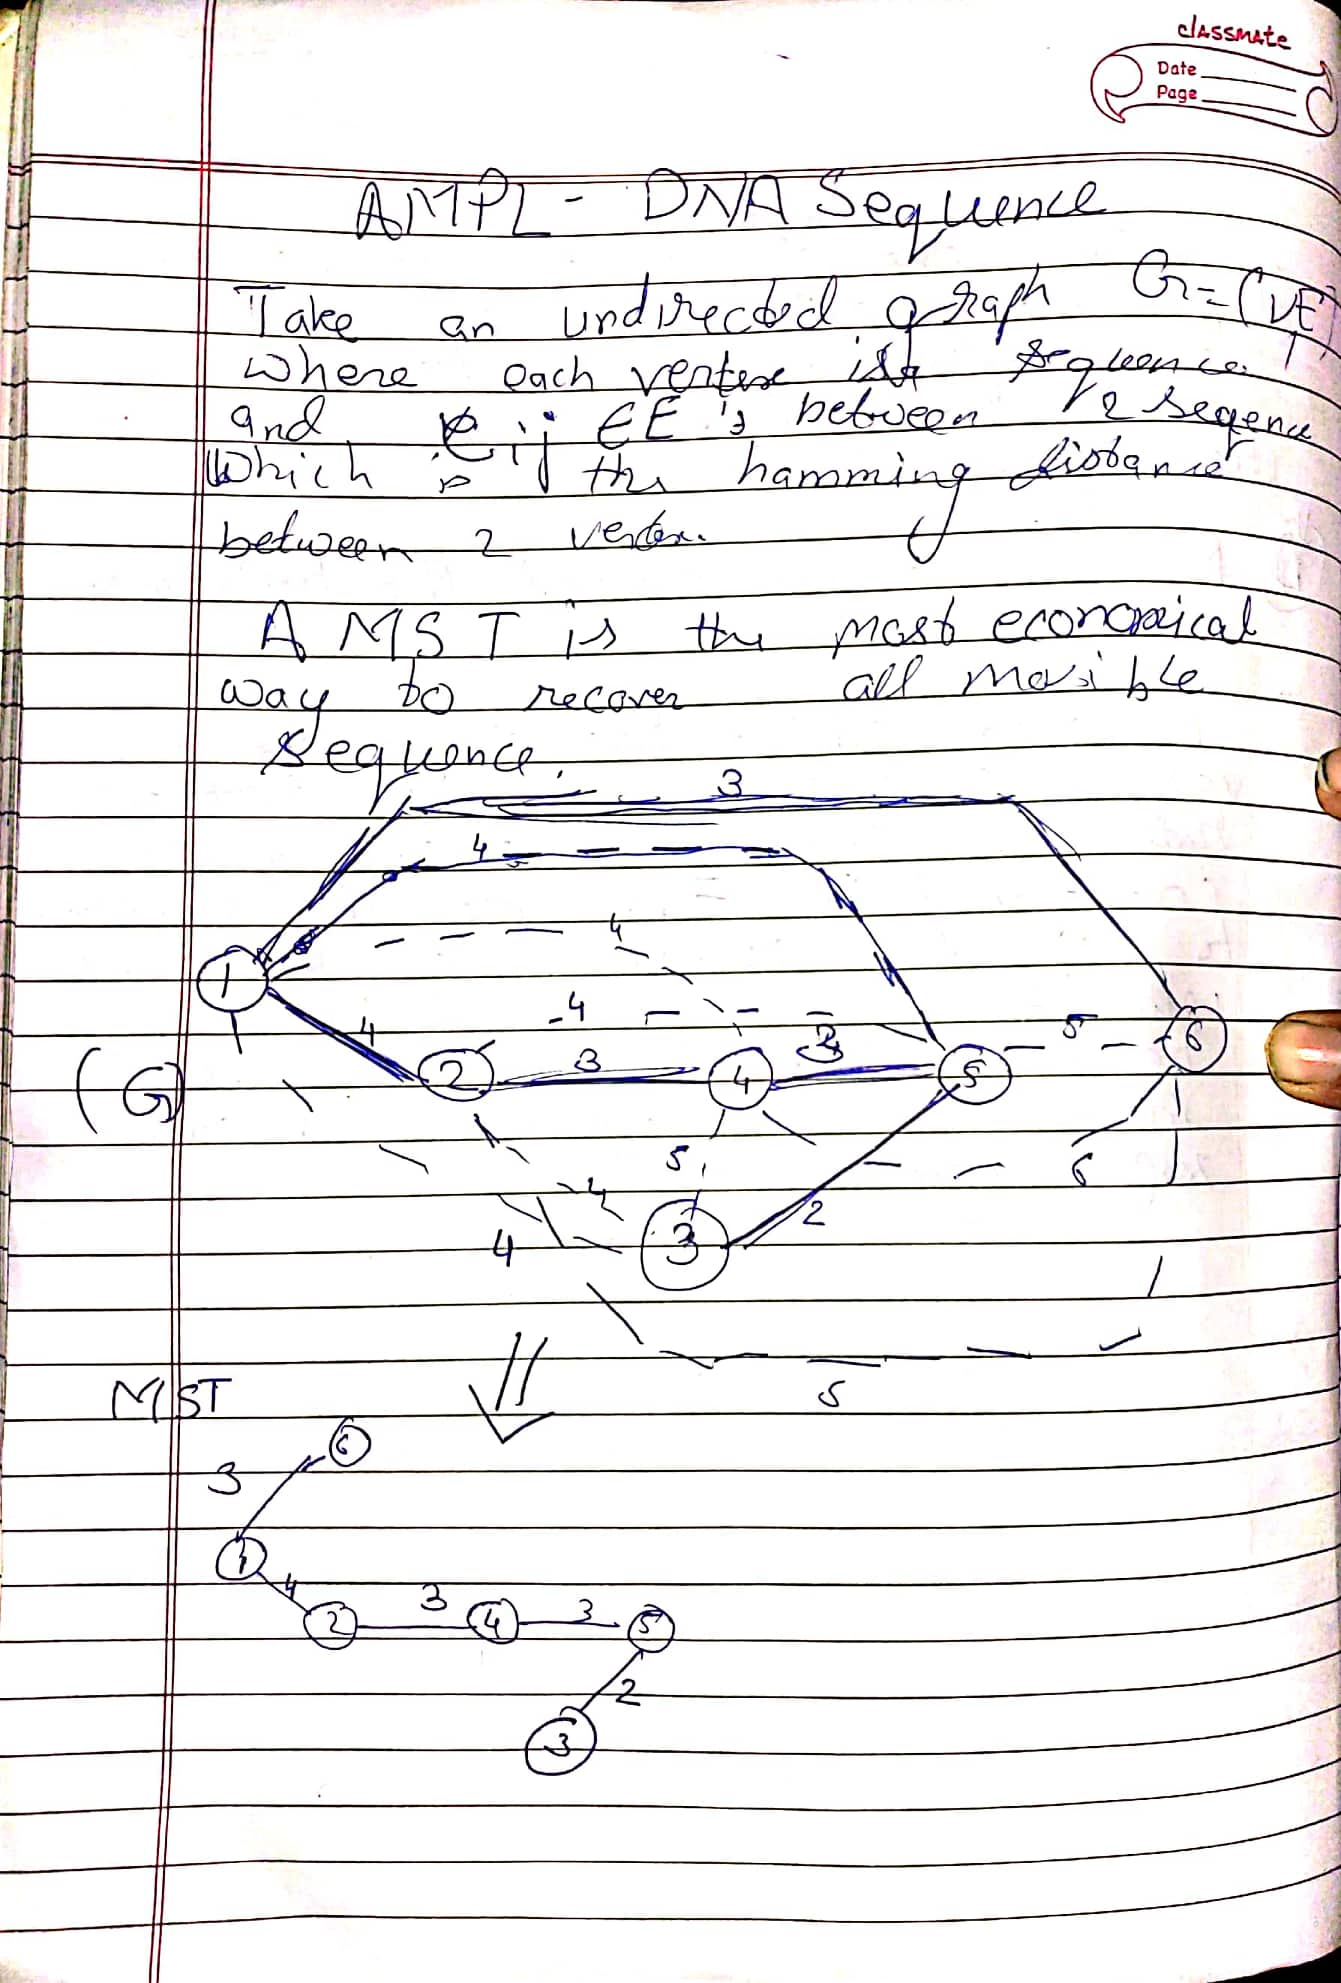 classmate
Date
Page
AMPL - DNA Sequence
Take an undirected graph G=(V,E)
where each vertex is a sequence
and eij ∈ E is between 2 seqence
which is the hamming distance
between 2 vertex.
A MST is the most economical
way to recover all
sequence.
3
4
4
1
4
-4
5
6
3
3
4
2
5
(G)
5
4
6
3
2
4
5
MST
6
3
1
4
3
3
2
4
5
2
3